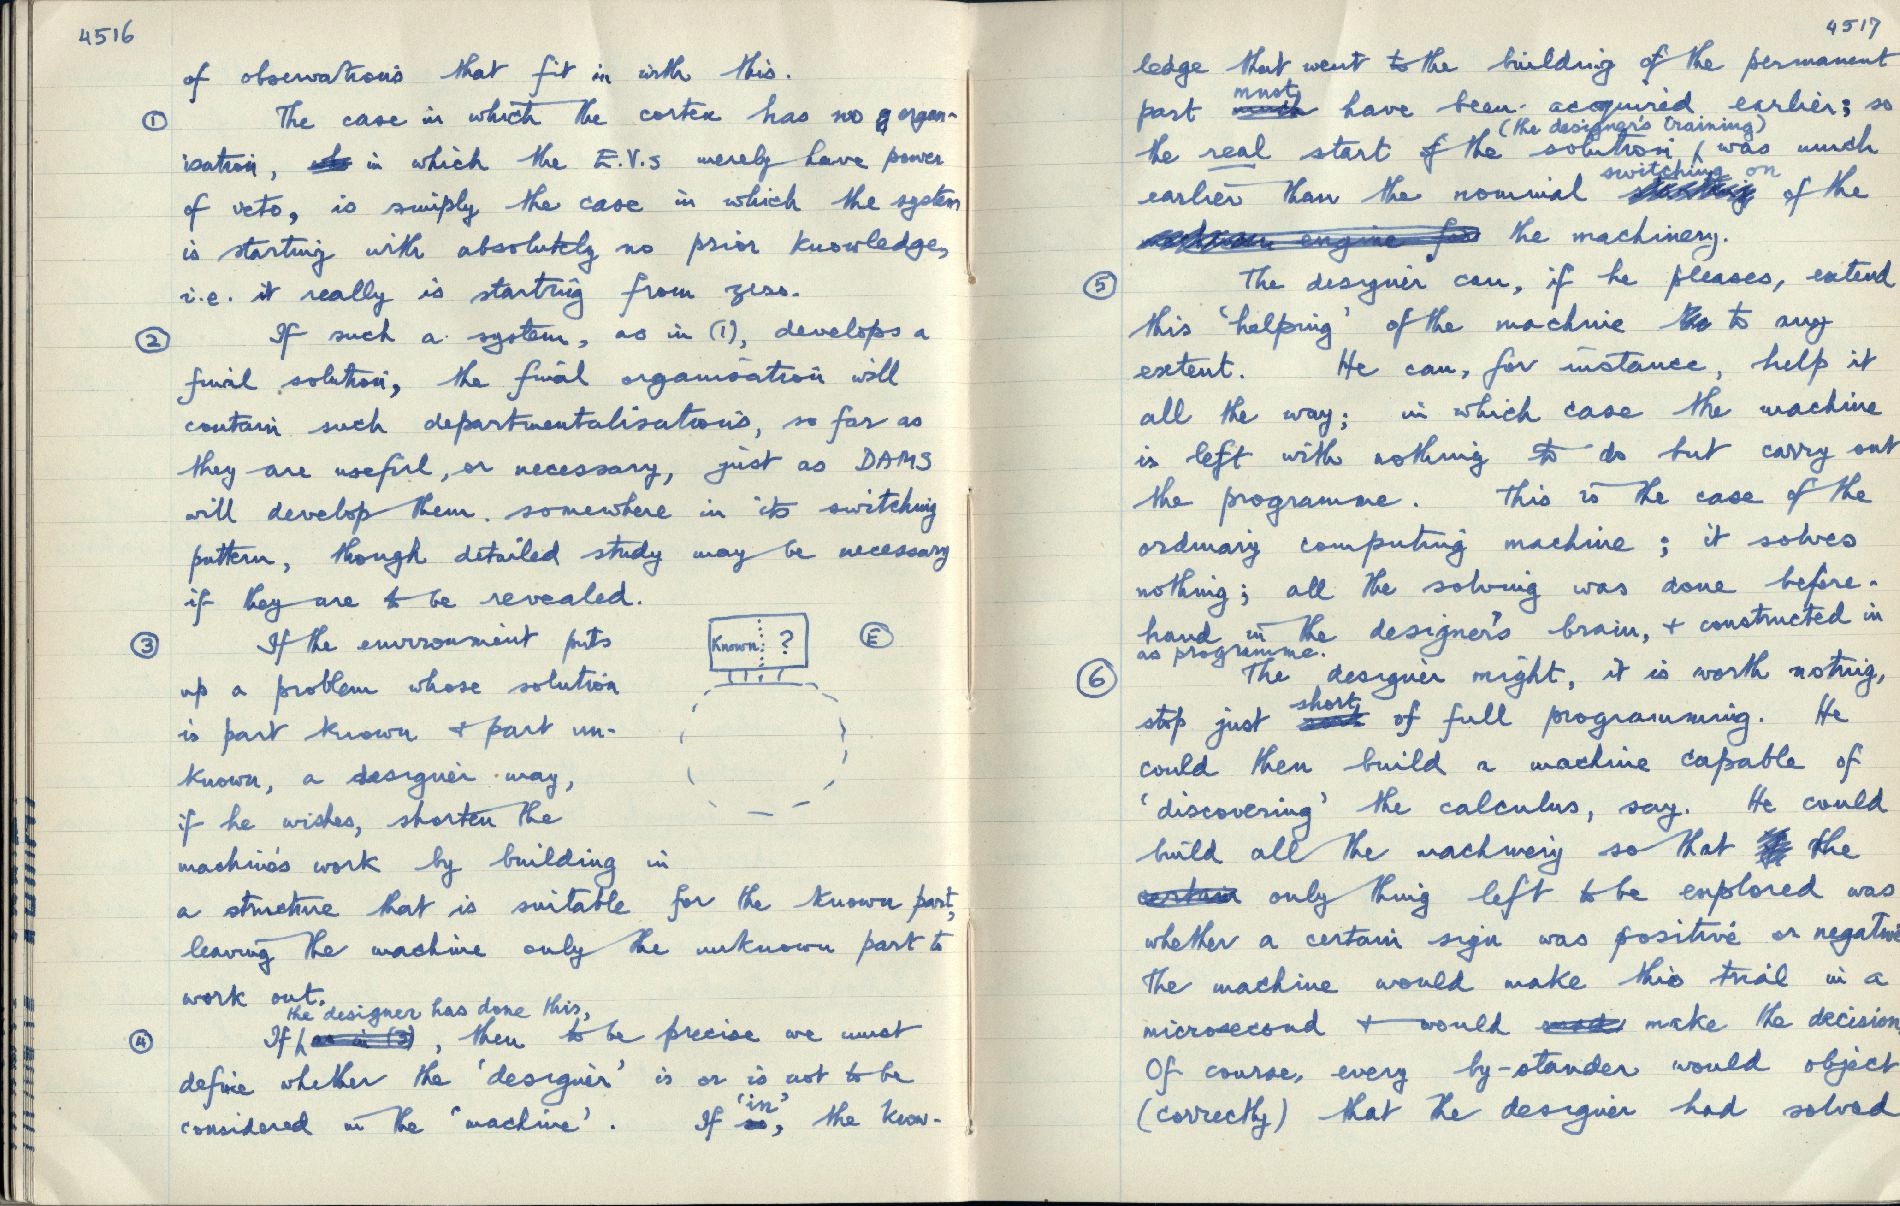 4516
of observations that fit in with this.
① The case in which the cortex has no organ-
isation, in which the E.V.s merely have power
of veto, is simply the case in which the system
is starting with absolutely no prior knowledge,
i.e. it really is starting from zero.
② If such a system, as in (1), develops a
final solution, the final organisation will
contain such departmentalisations, so far as
they are useful, or necessary, just as DAMS
will develop them somewhere in its switching
pattern, though detailed study may be necessary
if they are to be revealed.
③ If the environment puts
up a problem whose solution
is part known & part un-
known, a designer may,
if he wishes, shorten the
machine's work by building in
a structure that is suitable for the known part,
leaving the machine only the unknown part to
work out.
Known ?
E
the designer has done this,
④ If as in (3), then to be precise we must
define whether the 'designer' is or is not to be
considered in the 'machine'. If 'in', the know-
4517
ledge that went to the building of the permanent
part must have been acquired earlier; so
(the designer's training)
the real start of the solution was much
switching on
earlier than the nominal of the
engine for the machinery.
⑤ The designer can, if he pleases, extend
this 'helping' of the machine to any
extent. He can, for instance, help it
all the way; in which case the machine
is left with nothing to do but carry out
the programme. This is the case of the
ordinary computing machine; it solves
nothing; all the solving was done before-
hand in the designer's brain, & constructed in
as programme.
⑥ The designer might, it is worth noting,
stop just short of full programming. He
could then build a machine capable of
'discovering' the calculus, say. He could
build all the machinery so that the
certain only thing left to be explored was
whether a certain sign was positive or negative
The machine would make this trial in a
microsecond & would make the decision
Of course, every by-stander would object
(correctly) that the designer had solved